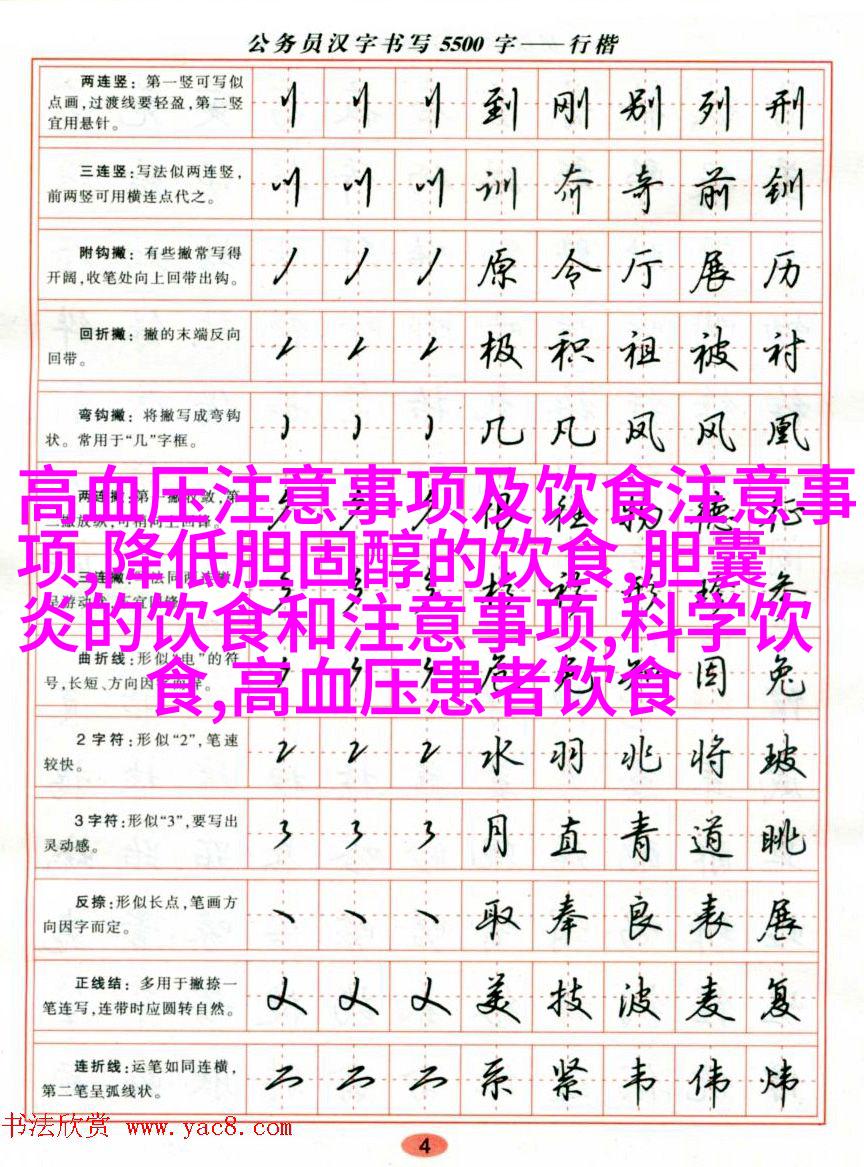 公务员汉字书写5500字——行楷
两连竖：第一竖可写似
点画，过渡线要轻盈，第二竖
宜用悬针。
到 刚 别 列 刑
三连竖：写法似两连竖，
前两竖可用横连点代之。
训 夼 奇 前 钏
附钩撇：有些撇常写得
开阔，收笔处向上回带出钩。
原 令 厅 展 历
回折撇：撇的末端反向
回带。
极 积 祖 被 衬
弯钩撇：将撇写成弯钩
状。常用于“几”字框。
几 凡 凤 风 凰
高血压注意事项及饮食注意事
项,降低胆固醇的饮食,胆囊
炎的饮食和注意事项,科学饮
食,高血压患者饮食
曲折线：形似“电”的符
号，长短、方向因
囡 兔
2字符：形似“2”，笔速
较快。
水 羽 兆 将 玻
3字符：形似“3”，要写出
灵动感。
月 直 青 道 眺
反捺：形似长点，笔画方
向因字而定。
取 奉 良 表 展
正线结：多用于撇捺一
笔连写，连带时应圆转自然。
美 技 波 麦 复
连折线：运笔如同连横，
第二笔呈弧线状。
系 紧 韦 伟 炜
书法欣赏 www.yac8.com
4